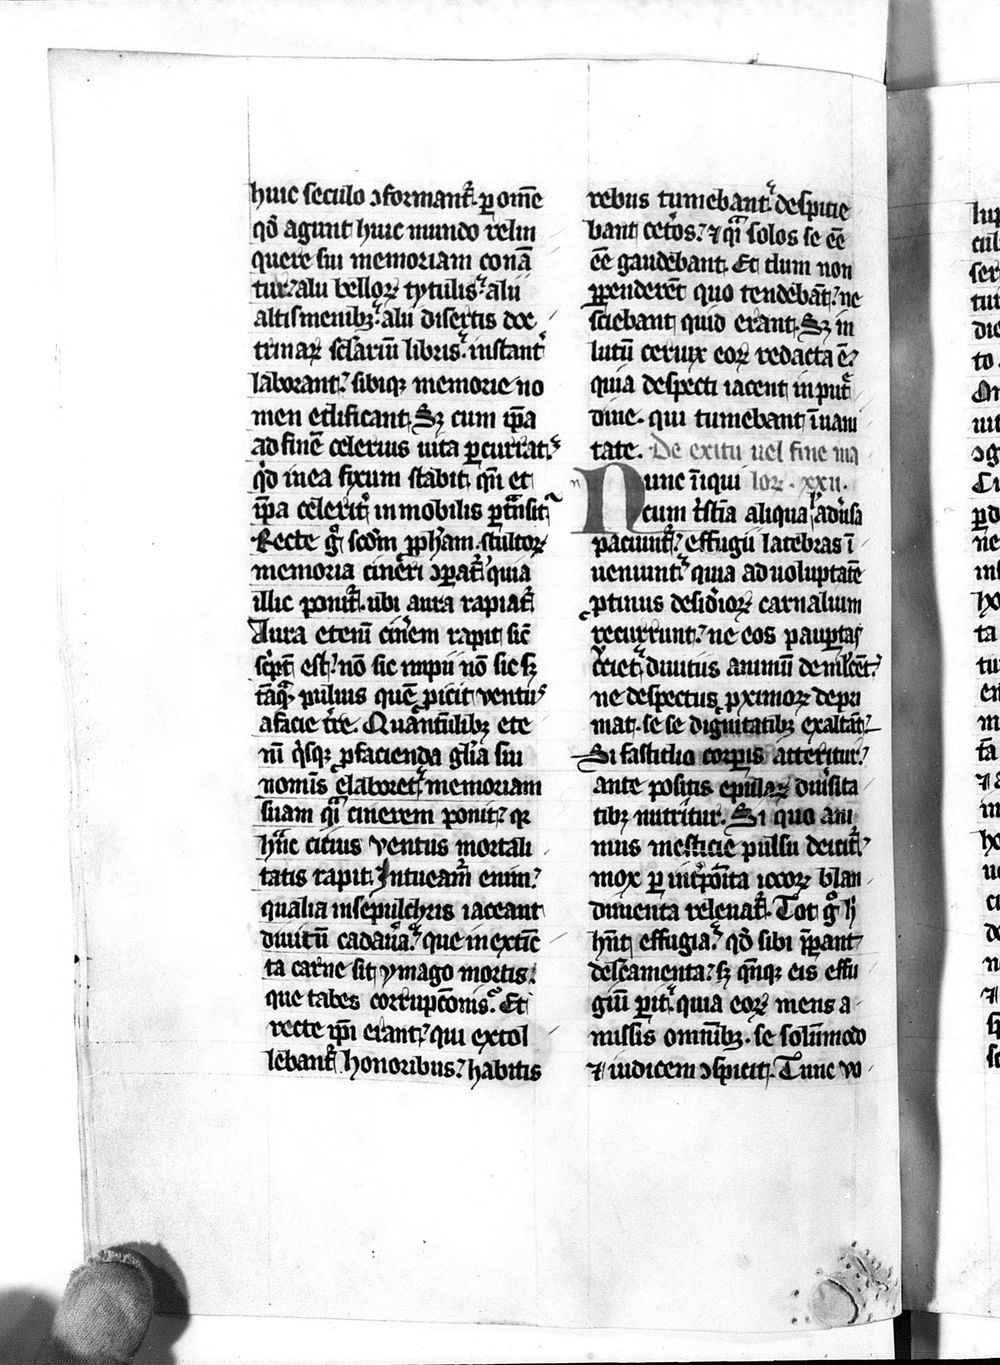 huic seculo ↄformant᷑. ꝑ om̅e
qd̓ agunt huic mundo relin
quere sui memoriam cona̅
tur᷑ alii belloꝝ tytulis᷑ alii
altis menibꝫ᷑ alii disertis doc
trinaꝝ sc̅lariu̅ libris᷑. instant᷑
laborant᷑ sibiqꝫ memorie no
men edificant. Sꝫ cum ip̅a
ad fine̅ celerius uita ꝑcurrat᷑
qd̓ in ea fixum stabit. qn̅ et
ip̅a celerit᷑ in mobilis ꝑt̅nsit.
Recte g̊ scd̅m ꝓph̅am. stultoꝝ
memoria cineri ↄꝑat᷑᷑ quia
illic ponit᷑. ubi aura rapiat᷑
Aura eteni̅ cin̓em rapit sic̅
sc̓pt̅ est᷑ no̅ sic impii no̅ sic sꝫ
ta̅qᷓ puluis que̅ ꝓicit ventus
a facie tr̅e. Quantu̅libꝫ ete
ni̅ qⁱsqꝫ ꝓ facienda gl̅ia sui
nomi̅s elaboret᷑ memoriam
suam qᷓ cinerem ponit᷑ qꝛ
hᷓc citius ventus mortali
tatis rapit. Intueam᷑ enim᷑
qualia in sepulchris iaceant
diuitu̅ cadau̓a᷑ que in exti̅c
ta carne sit ymago mortis.
que tabes corrupc̅onis᷑. Et
recte ip̅i erant᷑ qui extol
lebant᷑ honoribus᷑ habitis
rebus tumebant᷑ despicie
bant cet̓os᷑ ⁊ qᷓ solos se e̅e
e̅e gaudebant. Et dum non
ꝑpenderet̅ quo tendeba̅t᷑ ne
sciebant quid erant. Sꝫ in
lutu̅ ceruix eoꝝ redacta e̅᷑
quia despecti iacent in put᷑
dine. qui tumebant i̅ uani
tate. De exitu uel fine ma
loꝝ. xxii.
Nunc i̅iqui
cum t̓sti̅a aliqua᷑ adu̓sa
paciunt᷑᷑ effugii latebras i̅
ueniunt᷑ quia ad uoluptate̅
ꝓtinus desid̓ioꝝ carnalium
recurrunt᷑ ne eos pauꝑtas
c̓ciet᷑ diuitiis animu̅ demlce̅t᷑
ne despectus ꝓximoꝝ depri
mat. se se dignitatibꝫ exalta̅t᷑
Si fastidio corꝑis atteritur᷑
ante positis epulaꝝ diu̓sita
tibꝫ nutritur. Si quo ani
mus mesticie pulsu deicit᷑᷑
mox ꝑ int̓po̅ita iocoꝝ blan
dimenta releuat᷑. Tot g̊ h̓
hn̅t effugia᷑ qd̓ sibi p̅ꝑant
delc̅amenta᷑ sꝫ qn̅qꝫ eis effu
giu̅ ꝑit᷑ quia eoꝝ mens a
missis omnibꝫ. se solu̅modo
⁊ iudicem ↄspicit. Tunc vo